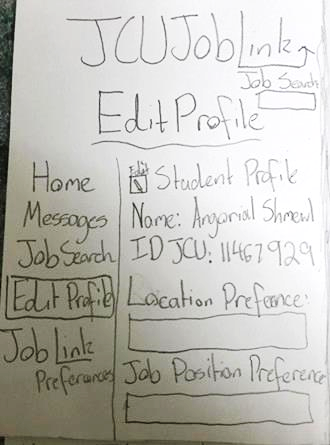 JCUJobLink
Job Search
Edit Profile
Home
Messages
Job Search
Edit Profile
Job Link
Preferances
Edit
Student Profile
Name:
ID JCU: 11467929
Location Prefeance:
Job Position Preference